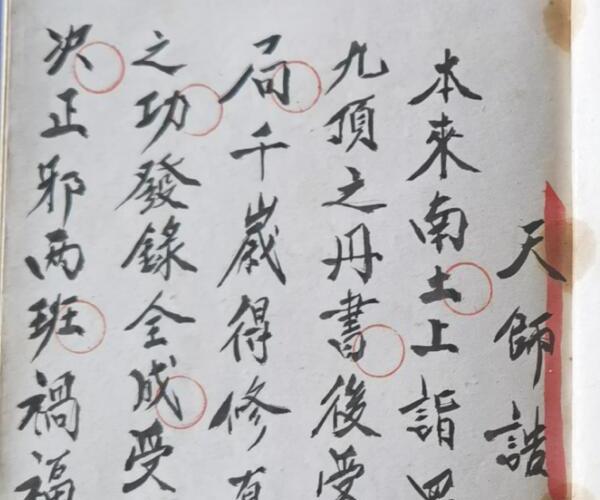 天師誥
本來南土上詣
九頂之丹書後受
局千歲得修
之功發錄全成受
决正邪两班禍福